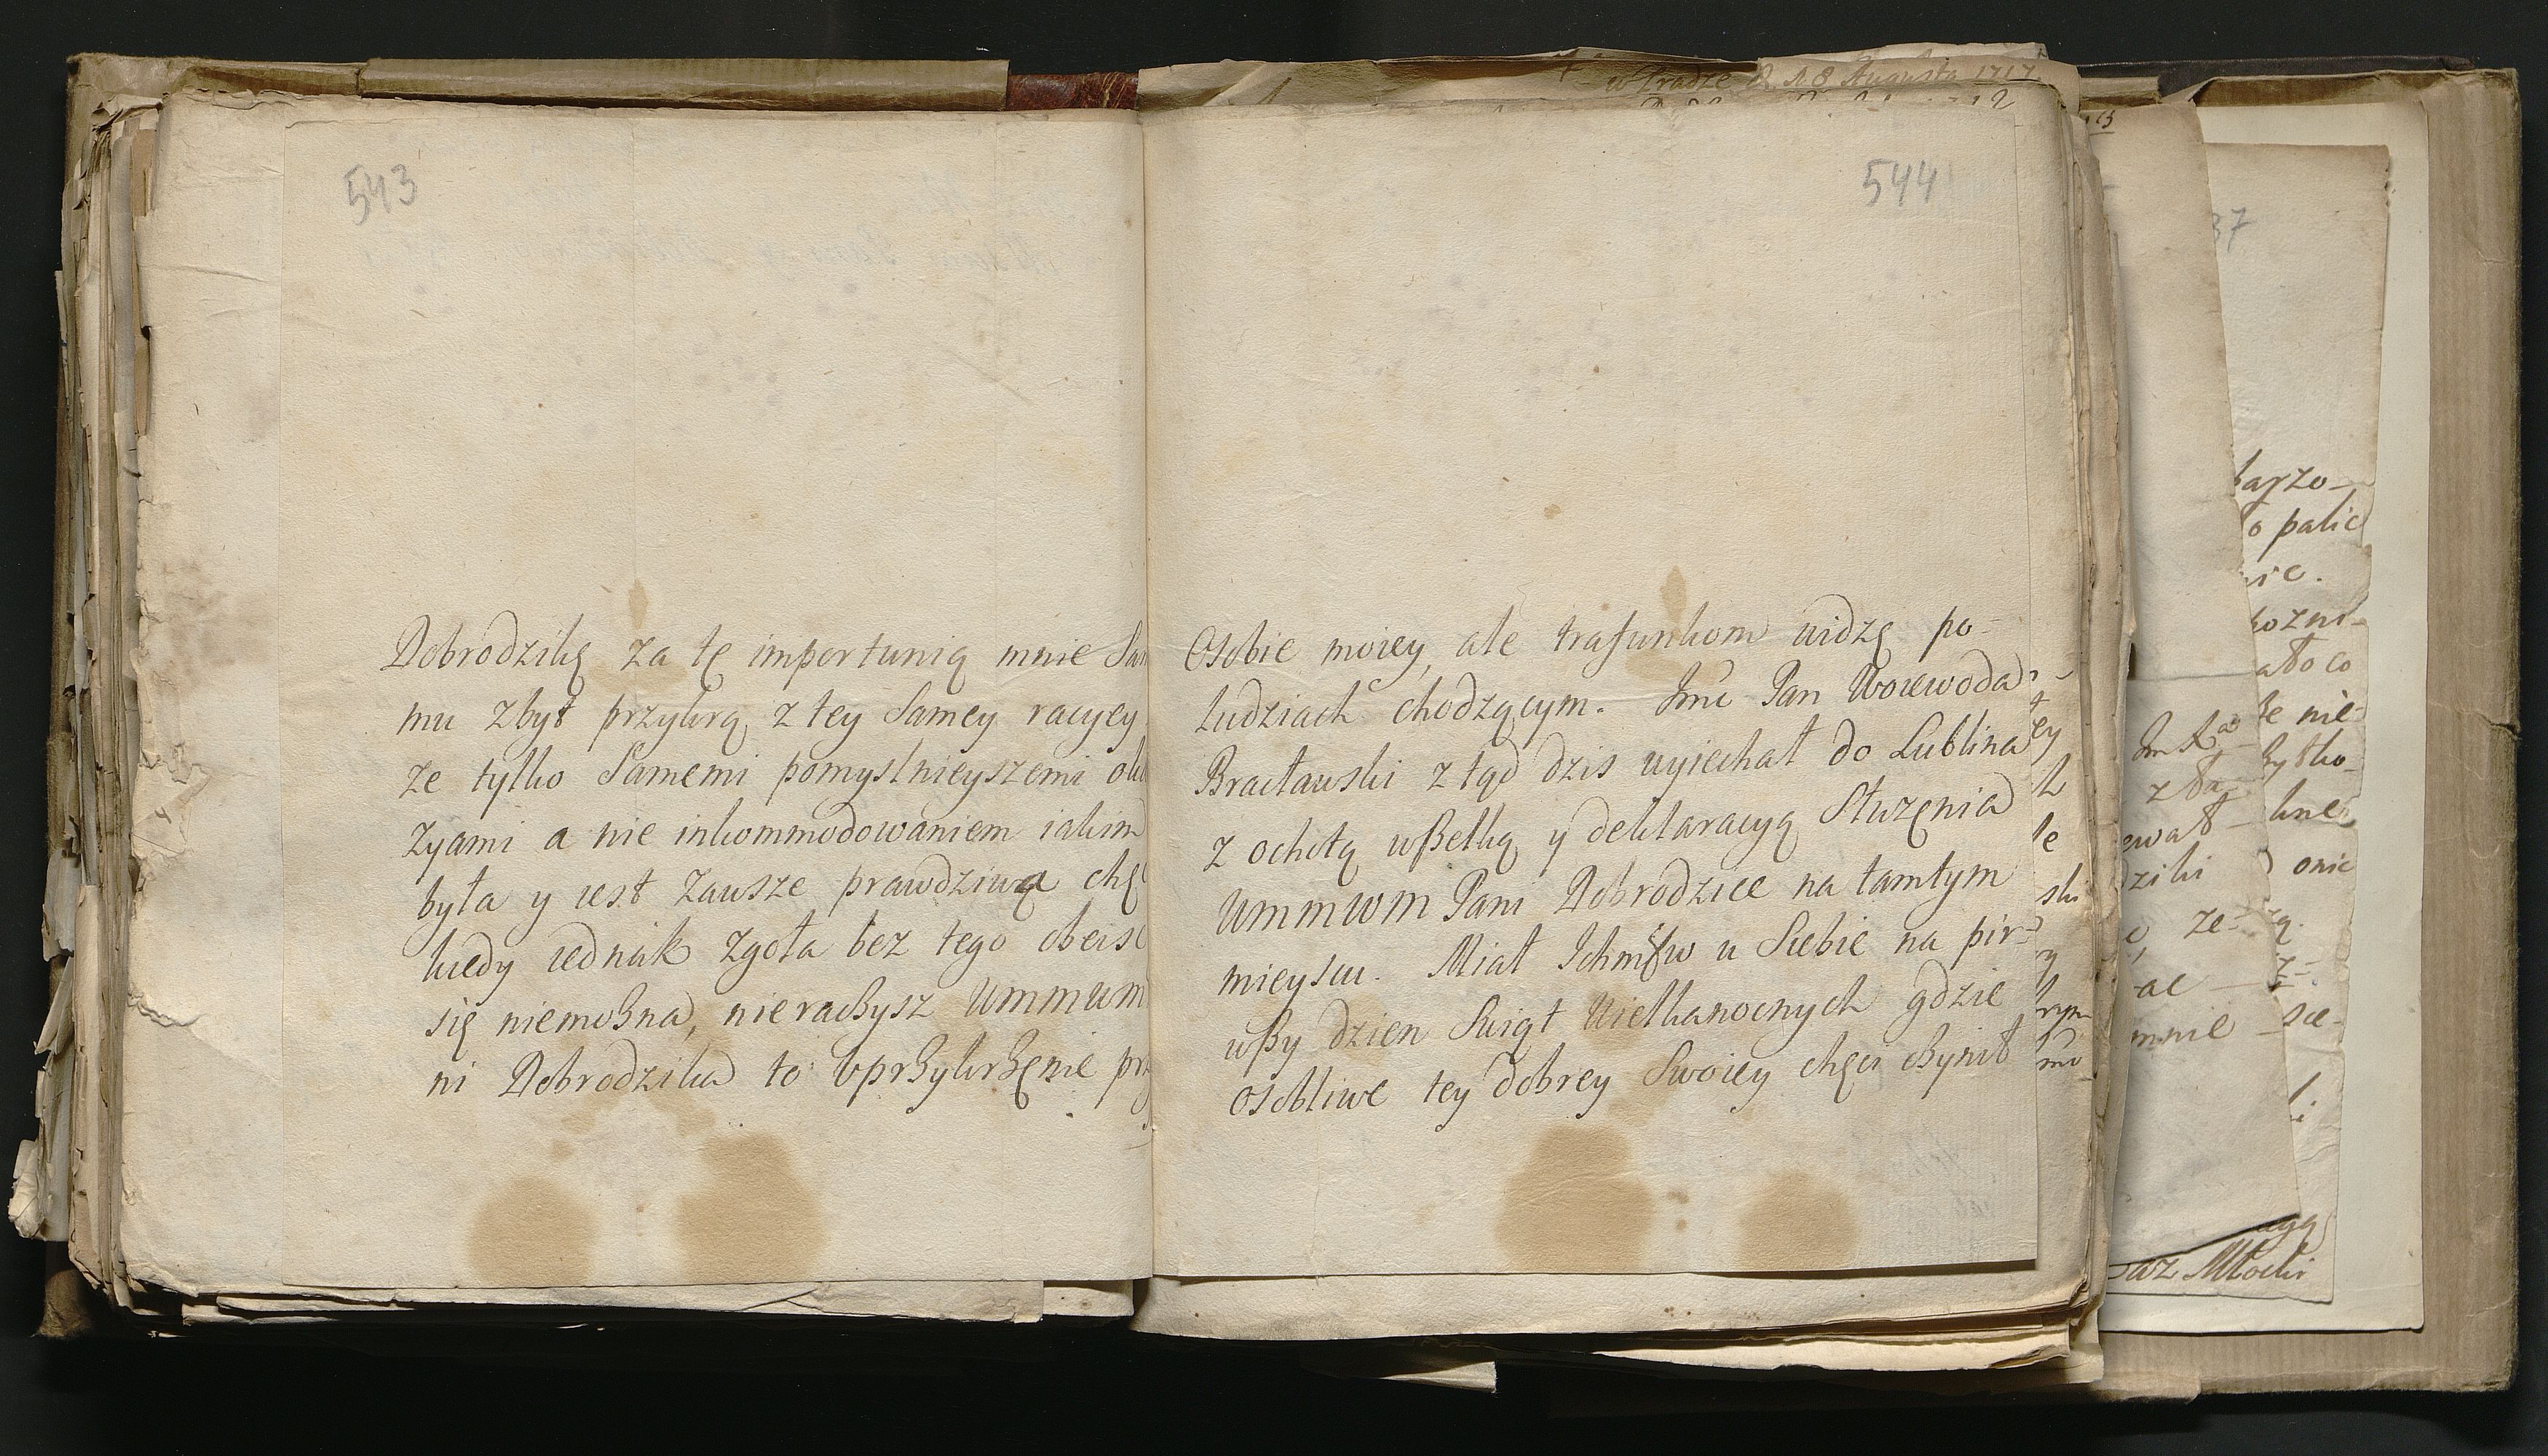 543
Dobrodzikę za tę importunią mnie Sa
mu zbyt przykrą z tey Samey racyey
że tylko Samemi pomyslnieyszemi ok
zyami a nie inkommodowaniem iakim
była y iest zawsze prawdziwa chę
kiedy iednak zgoła bez tego obeis
się niemożna, nieraczysz Ummwm
ni Dobrodzika to uprzykrzęnie prz
544
Osobie moiey, ale trafunkom widzę po-
ludziach chodzącym. Jmć Pan Woiewoda
Bracławski z tąd dzis wyiechał do Lublina
z ochotą wszelką y deklaracyą Służęnia
Ummwm Pani Dobrodzice na tamtym
mieyscu. Miał Ichmćw u Siebie na pir-
wszy dzien Swiąt Wielkanocnych gdzie
osobliwe tey dobrey Swoiey chęci czynił
Augusta 1717
37
barzo-
o palic
nie-
onie
ze-
mnie
Młocki